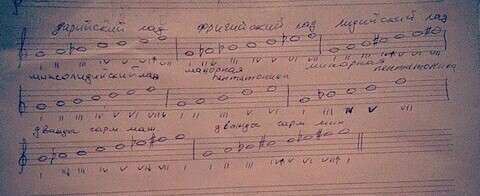 дорийский лад фригийский лад лидийский лад
I II III IV V VI VII I II III IV V VI VII I II III IV V VI VII
миксолидийский лад мажорная пентатоника минорная пентатоника
I II III IV V VI VII I II III V VI I III IV V VII
дважды гарм маж дважды гарм мин
I II III IV V VI VII I II III IV V VI VII I